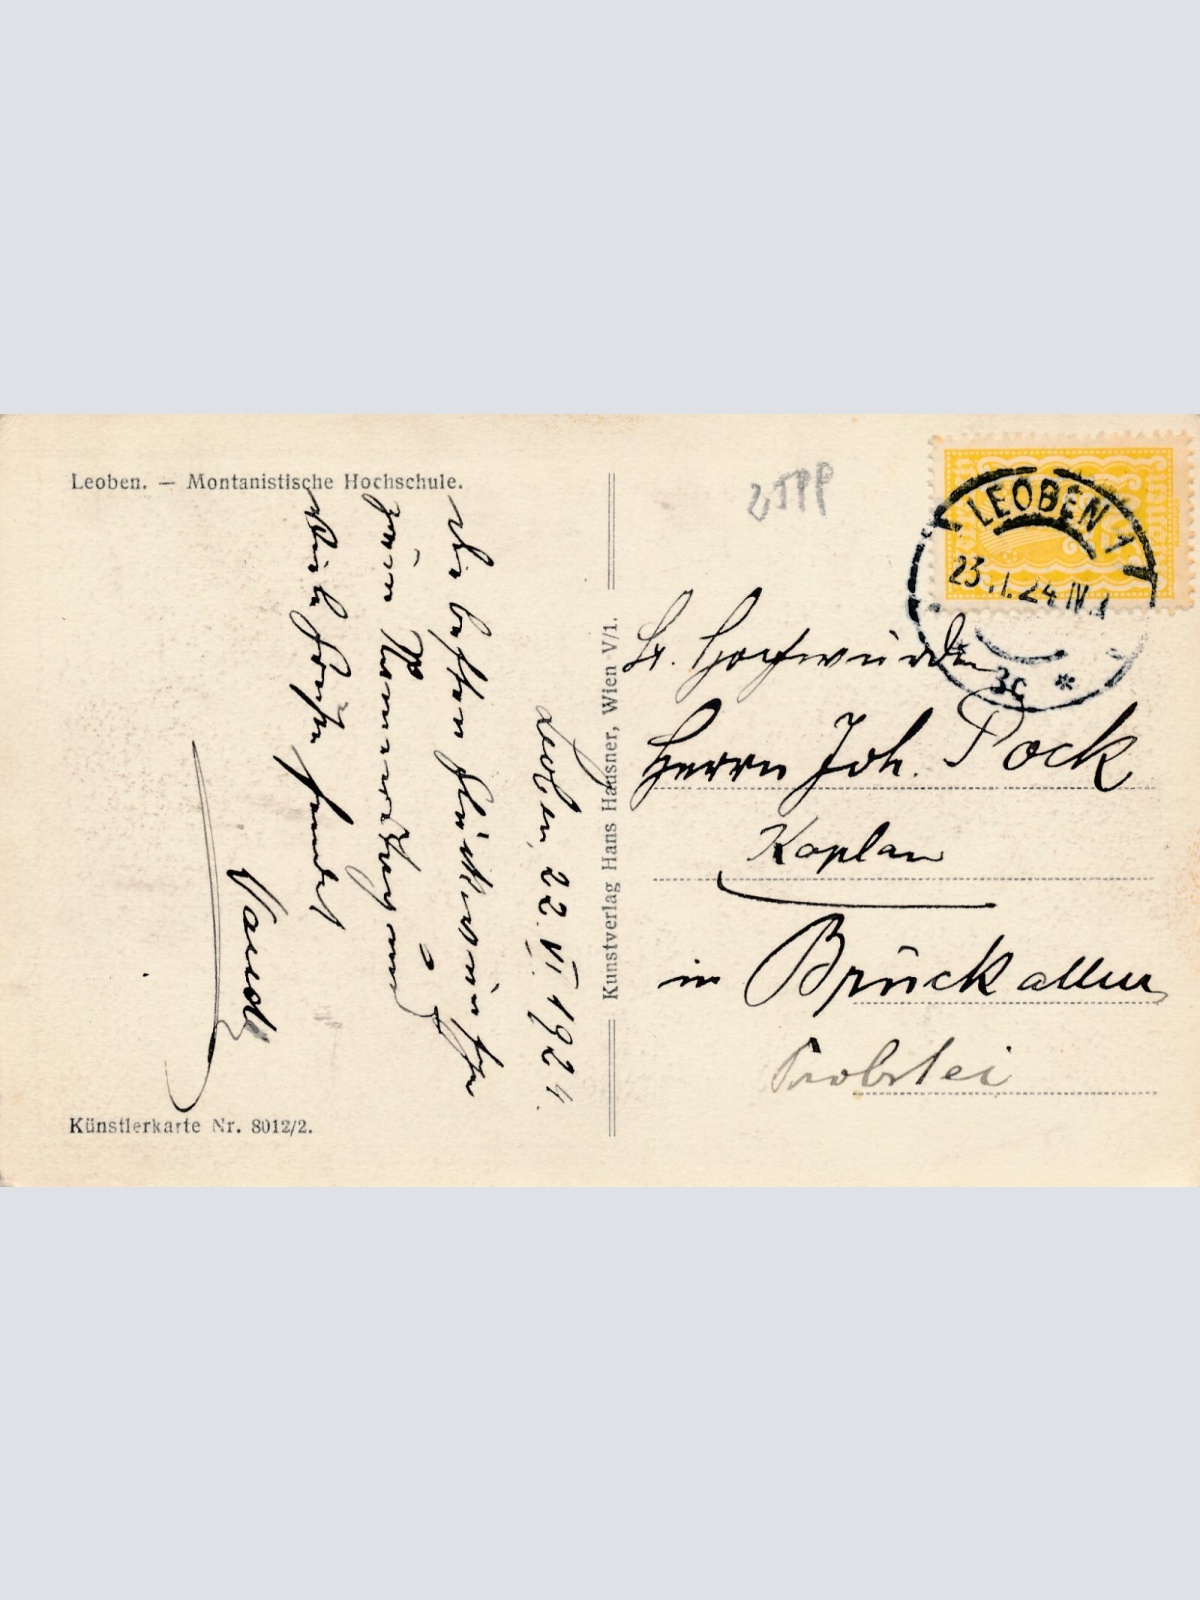 Leoben. — Montanistische Hochschule.
Leoben, 22. VI. 1924.
Die besten Glückwünsche
zum Namenstag und
viele Grüße sendet
Künstlerkarte Nr. 8012/2.
Kunstverlag Hans Hausner, Wien V/1.
LEOBEN 1
23. I. 24 IV
3c *
Sr. Hochwürden
Herrn Joh. Pock
Kaplan
in Bruck a/Mur
Probstei